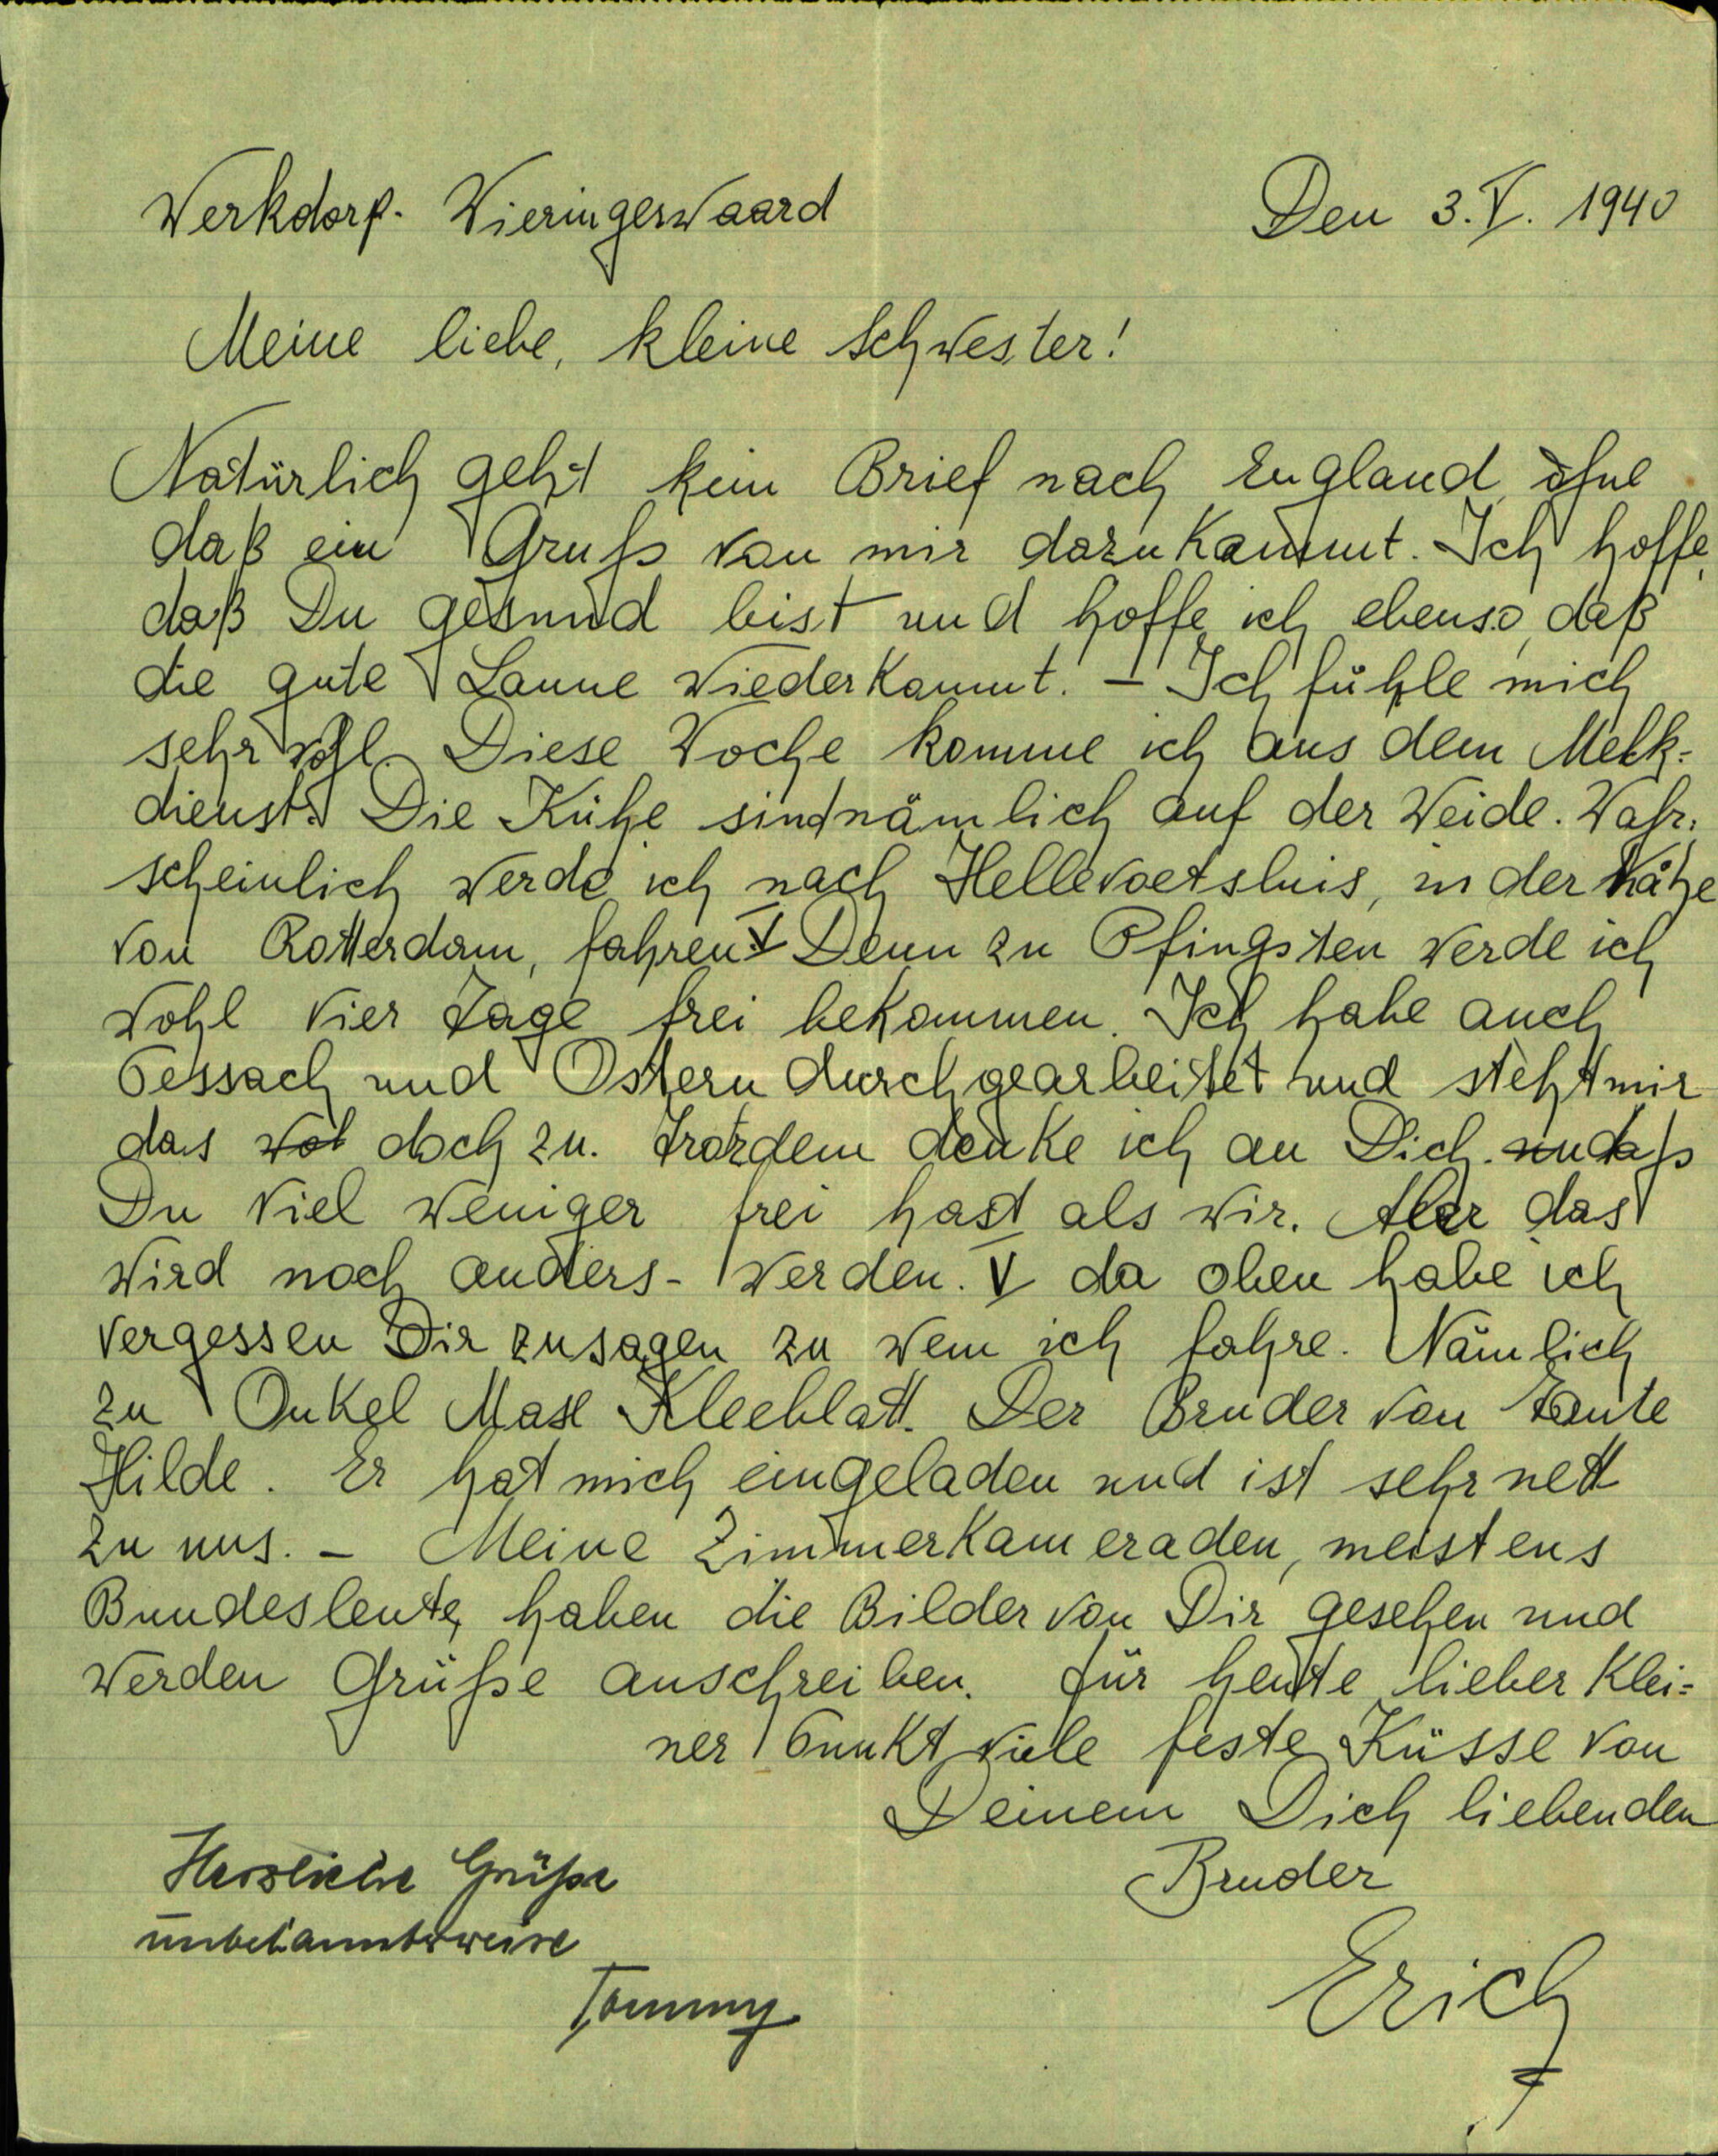 Werkdorp. Wieringerwaard Den 3.V. 1940
Meine liebe, kleine Schwester!
Natürlich geht kein Brief nach England, ohne
daß ein Gruß von mir dazukommt. Ich hoffe,
daß Du gesund bist und hoffe ich ebenso, daß
die gute Laune wiederkommt. – Ich fühle mich
sehr wohl. Diese Woche komme ich aus dem Melk-
dienst. Die Kühe sind nämlich auf der Weide. Wahr-
scheinlich werde ich nach Hellevoetsluis, in der Nähe
von Rotterdam, fahren. V Denn zu Pfingsten werde ich
wohl vier Tage frei bekommen. Ich habe auch
Pessach und Ostern durchgearbeitet und steht mir
das doch zu. Trotzdem denke ich an Dich. daß
Du viel weniger frei hast als wir. Aber das
wird noch anders- werden. V da oben habe ich
vergessen Dir zusagen zu wem ich fahre. Nämlich
zu Onkel Max Kleeblatt. Der Bruder von Tante
Hilde. Er hat mich eingeladen und ist sehr nett
zu uns. – Meine Zimmerkameraden, meistens
Bundesleute, haben die Bilder von Dir gesehen und
werden Grüße anschreiben. Für heute lieber klei-
ner Punkt viele feste Küsse von
Deinem Dich liebenden
Bruder
Erich
Herzliche Grüße
unbekannterweise
Tommy